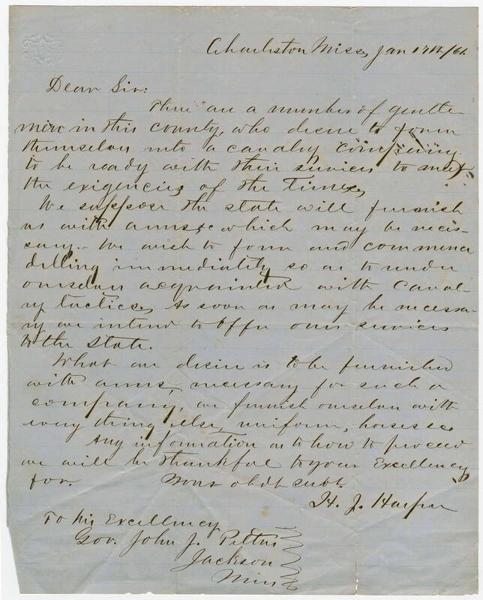 Charleston Miss, Jan 17th/61.
Dear Sir:
There are a number of gentle
men in this county, who desire to form
themselves into a cavalry company
to be ready with their services to meet
the exigencies of the Times,
We suppose the state will furnish
us with arms &c which may be neces-
sary. We wish to form and commence
drilling immediately so as to render
ourselves acquainted with caval-
ry tactics, As soon as may be necessa-
ry we intend to offer our services
to the State.
What we desire is to be furnished
with arms, necessary for such a
company, we furnish ourselves with
every thing else, uniform, horses &c
Any information as to how to proceed
we will be thankful to your Excellency
for. Your obdt subt.
H. J. Harper
To his Excellency
Gov. John J. Pettus
Jackson
Miss